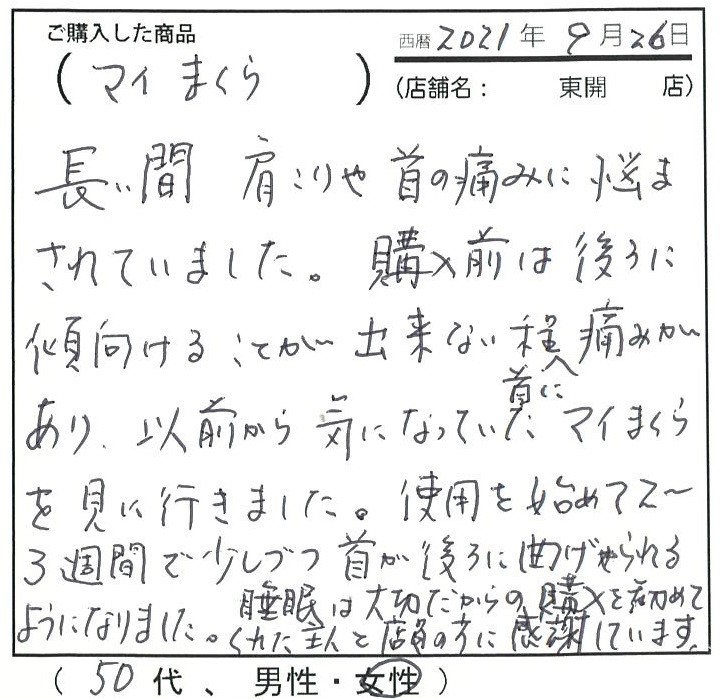 ご購入した商品
西暦 2021年 9月26日
(マイまくら)
(店舗名： 東開 店)
長い間 肩こりや首の痛みに悩ま
されていました。購入前は後ろに
傾向けることが出来ない程 首に 痛みが
あり、以前から気になっていた マイまくら
を見に行きました。使用を始めて2〜
3週間で少しづつ首が後ろに曲げられる
ようになりました。睡眠は大切だからの購入を勧めて
くれた主人と店員の方に感謝しています。
(50代、男性・女性)